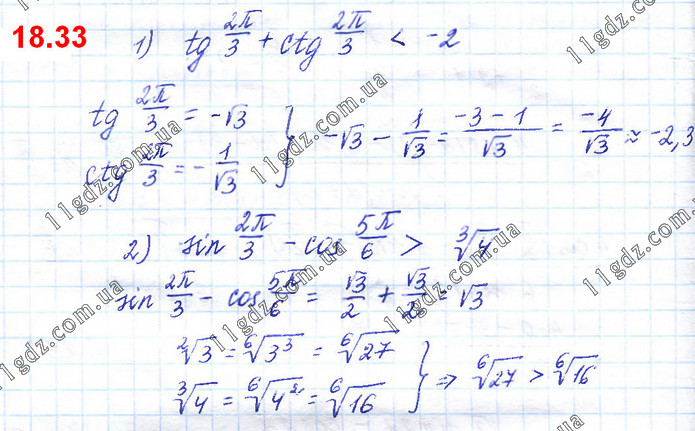 18.33
1) tg 2π/3 + ctg 2π/3 < -2
tg 2π/3 = -√3
ctg 2π/3 = - 1/√3
} -√3 - 1/√3 = (-3 - 1)/√3 = -4/√3 ≈ -2,3
2) sin 2π/3 - cos 5π/6 > ∛4
sin 2π/3 - cos 5π/6 = √3/2 + √3/2 = √3
²√3 = ⁶√3³ = ⁶√27
³√4 = ⁶√4² = ⁶√16
} => ⁶√27 > ⁶√16
11gdz.com.ua
11gdz.com.ua
11gdz.com.ua
11gdz.com.ua
11gdz.com.ua
11gdz.com.ua